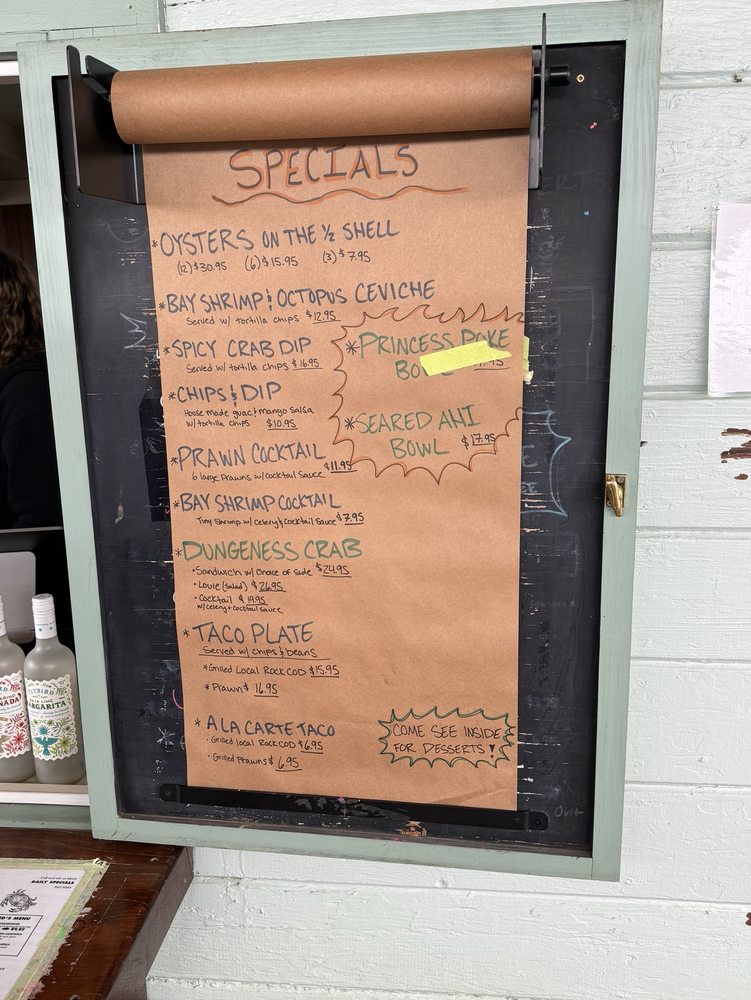 SPECIALS
* OYSTERS ON THE ½ SHELL
(12) $30.95 (6) $15.95 (3) $7.95
* BAY SHRIMP & OCTOPUS CEVICHE
Served w/ tortilla chips $12.95
* SPICY CRAB DIP
Served w/ tortilla chips $16.95
* CHIPS & DIP
House made guac & mango salsa
w/ tortilla chips $10.95
* PRAWN COCKTAIL $11.95
6 large Prawns w/ cocktail sauce
* BAY SHRIMP COCKTAIL
Tiny Shrimp w/ celery & cocktail sauce $7.95
* DUNGENESS CRAB
• Sandwich w/ choice of side $24.95
• Louie (salad) $26.95
• Cocktail $19.95
w/ celery + cocktail sauce
* TACO PLATE
Served w/ chips & beans
* Grilled Local ROCKCOD $15.95
* Prawn $ 16.95
* A LA CARTE TACO
• Grilled local ROCKCOD $6.95
• Grilled Prawns $ 6.95
* PRINCESS POKE
* SEARED AHI
BOWL $17.95
COME SEE INSIDE
FOR DESSERTS!
MARGARITA
Call and ask us about
DAILY SPECIALS